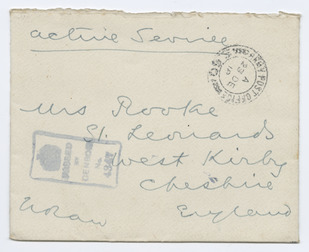 active Service
ARMY POST OFFICE
A
23 DE
15
Mrs Rooke
St. Leonards
West Kirby
Cheshire
England
PASSED
BY
CENSOR
No